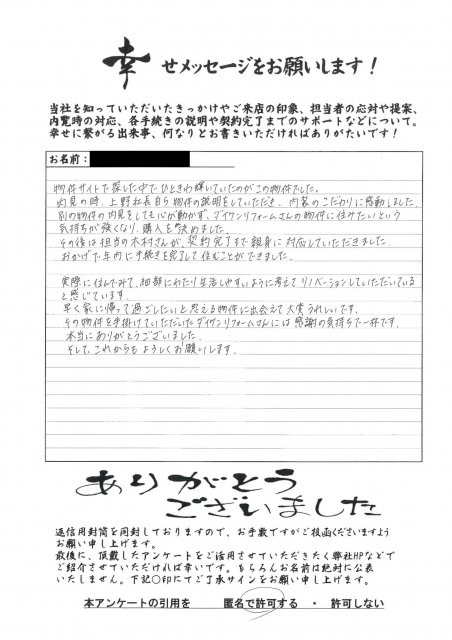 幸せメッセージをお願いします!
当社を知っていただいたきっかけやご来店の印象、担当者の応対や提案、
内覧時の対応、各手続きの説明や契約完了までのサポートなどについて。
幸せに繋がる出来事、何なりとお書きいただければありがたいです!
お名前:
物件サイトで探した中でひときわ輝いていたのがこの物件でした。
内見の時、上野社長自ら物件の説明をしていただき、内装のこだわりに感動しました。
別の物件の内見をしても心が動かず、ダイワンリフォームさんの物件に住みたいという
気持ちが強くなり、購入を決めました。
その後は担当の木村さんが、契約完了まで親身に対応していただきました。
おかげで年内に手続きを完了して住むことができました。
実際に住んでみて、細部にわたり生活しやすいように考えてリノベーションしていただいている
と感じています。
早く家に帰って過ごしたいと思える物件に出会えて大変うれしいです。
その物件を手掛けていただいたダイワンリフォームさんには感謝の気持ちで一杯です。
本当にありがとうございました。
そして、これからもよろしくお願いします。
ありがとう
ございました
返信用封筒を同封しておりますので、お手数ですがご投函くださいますよう
お願い申し上げます。
最後に、頂戴したアンケートをご活用させていただきたく弊社HPなどで
ご紹介させていただければ幸いです。もちろんお名前は絶対に公表
いたしません。下記○印にてご了承サインをお願い申し上げます。
本アンケートの引用を 匿名で許可する ・ 許可しない